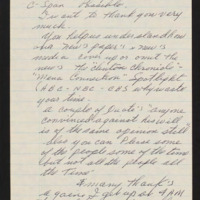 C-Span
I want to thank you very
much.
You help us understand how
our news paper's & news
media cover up or omit the
news The Clinton Chronicle
"Mena Connection" Spotlight
(ABC - NBC - CBS why waste
your time.
A couple of Quote's "anyone
convinced against his will
is of the same opinion still"
You can Please some
of the people some of the time
but not all the people all
the Time"
Many thank's
I get up at 4 AM